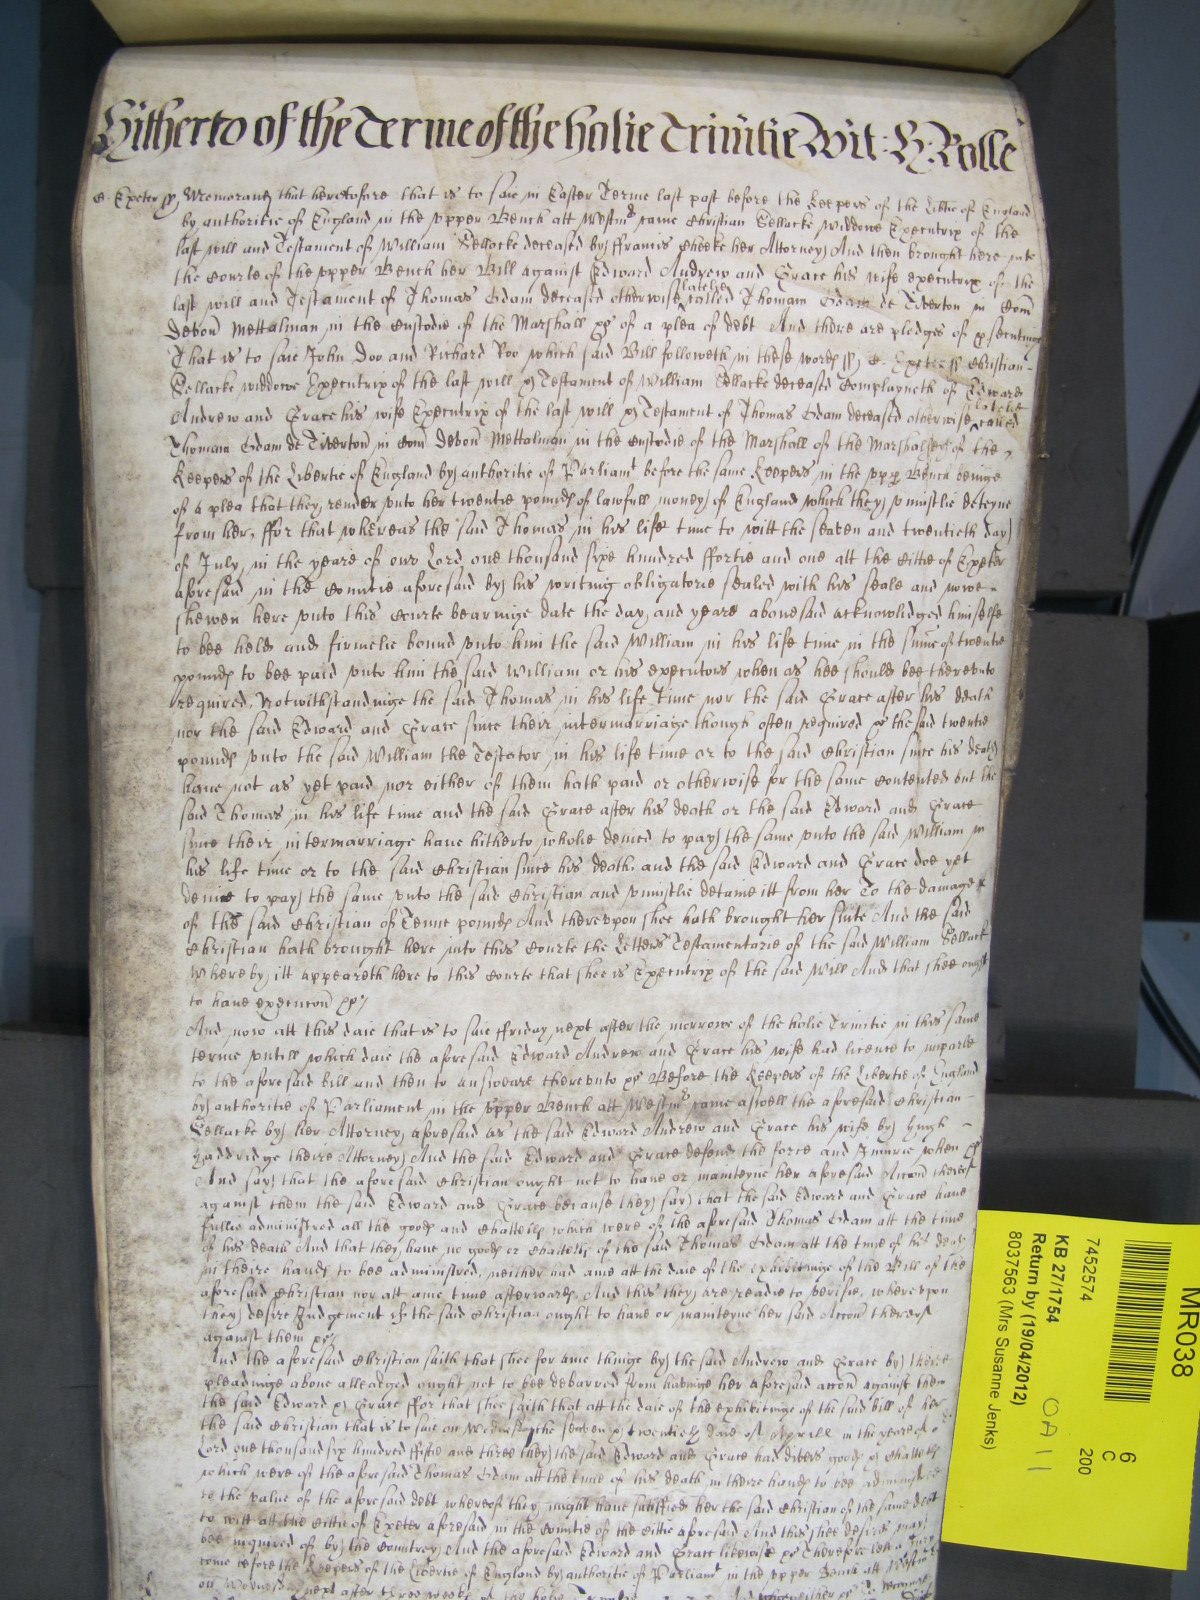 Hitherto of the Terme of the holie Trinitie Wit: H: Rolle
C. Exeter ss Memorand that heretofore that is to saie in Easter Terme last past before the Keepers of the Libtie of England
by authoritie of England in the vpper Bench att Westmr came Christian Sellacke widdowe Executrix of the
last will and Testament of William Sellacke deceased by ffrancis Cheeke her Attorney And then brought here into
the Courte of the vpper Bench her Bill against Edward Andrew and Grace his wife executrix of the
last will and Testament of Thomas Edam deceased otherwise latelie called Thomam Edam de Tiverton in Com
Devon Mettalman in the Custodie of the Marshall &c of a plea of debt And there are pledges of psecuting
That is to saie John Doo and Richard Roo which said Bill followeth in these words ss C. Exeter ss Christian
Sellacke widdowe Executrix of the last will & Testament of William Sellacke deceased Complayneth of Edward
Andrew and Grace his wife Executrix of the last will & Testament of Thomas Edam deceased otherwise latelie called
Thomam Edam de Tiverton in Com Devon Mettalman in the Custodie of the Marshall of the Marshalsey of the
Keepers of the Libertie of England by authoritie of Parliamt before the same Keepers in the vpp Bench beinge
of a plea that they render vnto her twentie pounds of lawfull money of England which they vniustlie deteyne
from her, ffor that whereas the said Thomas in his life time to witt the seaven and twentieth day
of July in the yeare of our Lord one thousand sixe hundred ffortie and one att the Cittie of Exeter
aforesaid in the Countie aforesaid by his writing obligatorie sealed with his seale and nowe
shewen here vnto this Courte bearinge date the day and yeare abouesaid acknowledged himselfe
to bee held and firmelie bound vnto him the said William in his life time in the summe of twentie
pounds to bee paid vnto him the said William or his executors when as hee should bee therevnto
required, Notwithstandinge the said Thomas in his life time nor the said Grace after his death
nor the said Edward and Grace since their intermarriage though often required &c the said twentie
pounds vnto the said William the Testator in his life time or to the said Christian since his death
haue not as yet paid nor either of them hath paid or otherwise for the same contented but the
said Thomas in his life time and the said Grace after his death or the said Edward and Grace
since their intermarriage haue hitherto wholie denied to pay the same vnto the said William in
his life time or to the said Christian since his death and the said Edward and Grace doe yet
denie to pay the same vnto the said Christian and vniustlie detaine itt from her To the damage
of the said Christian of Tenne pounds And therevpon shee hath brought her suite And the said
Christian hath brought here into this Courte the Letters Testamentarie of the said William Sellack
whereby itt appeareth here to this Courte that shee is Executrix of the said Will And that shee ought
to haue execucon &c
And now att this daie that is to saie ffriday next after the morrowe of the holie Trinitie in this same
terme vntill which daie the aforesaid Edward Andrew and Grace his wife had licence to imparle
to the aforesaid bill and then to answeare therevnto &c Before the Keepers of the Libertie of England
by authoritie of Parliament in the vpper Bench att Westmr came aswell the aforesaid Christian
Sellacke by her Attorney aforesaid as the said Edward Andrew and Grace his wife by Hugh
their Attorney And the said Edward and Grace defend the force and Iniurie when &c
And say that the aforesaid Christian ought not to haue or mainteyne her aforesaid Accon thereof
against them the said Edward and Grace because they say that the said Edward and Grace haue
fullie administred all the goods and Chattells which were of the aforesaid Thomas Edam att the time
of his death And that they haue no goods or Chattells of the said Thomas Edam att the time of his death
in theire hands to bee administred, neither had anie att the daie of the exhibitinge of the Bill of the
aforesaid Christian nor att anie time afterwards And this they are readie to verifie, wherevpon
they desire Judgement if the said Christian ought to haue or mainteyne her said Accon thereof
against them &c
And the aforesaid Christian saith that shee for anie thinge by the said Andrew and Grace by theire
pleadinge aboue alleadged ought not to bee debarred from haueinge her aforesaid accon against them
the said Edward & Grace ffor that shee saith that att the daie of the exhibitinge of the said bill of her
the said Christian that is to saie on the seaven & twentieth daie of Aprill in the yeare of o
Lord one thousand six hundred fiftie and three they the said Edward and Grace had divers goods & Chattells
which were of the aforesaid Thomas Edam att the time of his death in theire hands to bee administred
to the value of the aforesaid debt whereof they might haue satisfied her the said Christian of the same debt
to witt att the Cittie of Exeter aforesaid in the Countie of the Cittie aforesaid And this shee desires may
bee inquired of by the Countrey And the aforesaid Edward and Grace likewise &c Therefore lett a Jury
come before the Keepers of the libertie of England by authoritie of Parliamt in the vpper Bench att Westmr
on next after three weeks of the holie
MR038
6
C
200
7452574
KB 27/1754
Return by (19/04/2012)
8037563 (Mrs Susanne Jenks)
OA 11